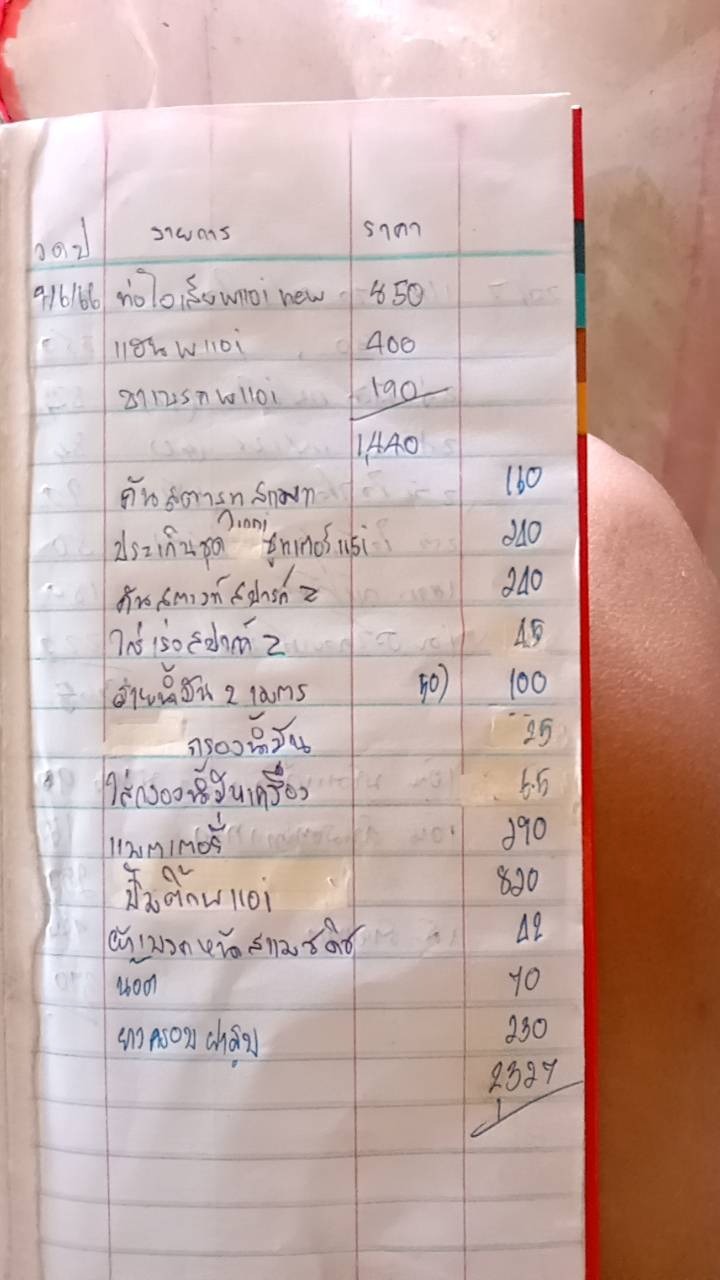 วดป รายการ ราคา
9/6/66 ท่อไอเสียพแอ่ new 850
แฮนพแอ่ 400
ขาเบรกพแอ่ 190
1,440
คันสตารท สแมท 160
ประเก็นชุด สกูทเตอร์ 240
คันสตาร์ท สปาร์ค 2 240
ไส้เร่งสปาร์ค 2 45
สายน้ำมัน 2 เมตร 50) 100
กรองน้ำมัน 25
ไส้กรองน้ำมันเครื่อง 55
แบตเตอรี่ 290
ปั๊มติ๊กพแอ่ 820
ผ้าเบรคหน้าสแมชดิช 42
น้อต 70
ยางครอบฝาสูบ 230
2327